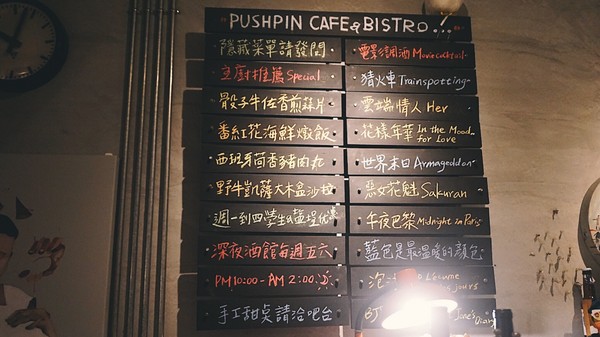 PUSHPIN CAFE & BISTRO!!
隱藏菜單請發問
主廚推薦 Special
骰子牛佐香煎蒜片
番紅花海鮮燉飯
西班牙茴香豬肉丸
野牛凱薩大木盒沙拉
週一到四學生&鹽埕優惠
深夜酒館每週五六
PM 10:00 - AM 2:00
手工甜點請洽吧台
電影調酒 Movie cocktail
猜火車 Trainspotting
雲端情人 Her
花樣年華 In the Mood for Love
世界末日 Armageddon
惡女花魁 Sakuran
午夜巴黎 Midnight in Paris
藍色是最溫暖的顏色
泡 L'écume jours
BJ Jones's Diary